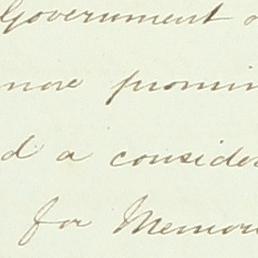 Government o
more promin
d a consider
for Memor